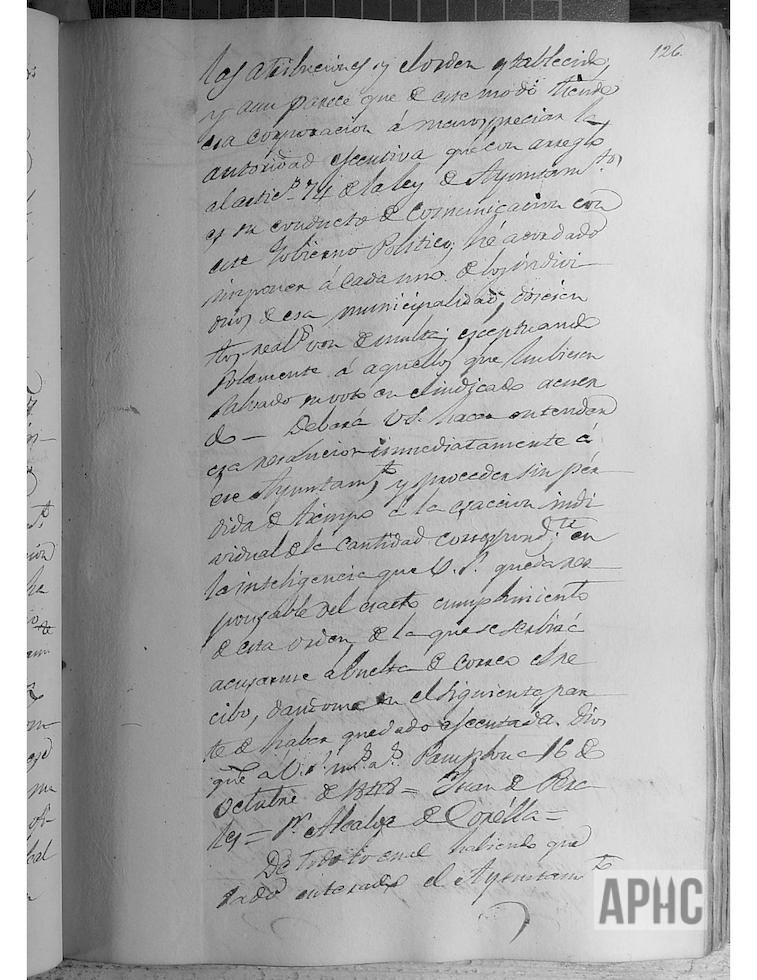 126.
las atribuciones y el orden establecido,
y aun parece que de este modo tiende
esa corporacion á menospreciar la
autoridad egecutiva que con arreglo
al artic.º 74 de la ley de Ayuntam.tos
es su conducto de comunicacion con
este Gobierno Politico; hé acordado
imponer á cada uno de los indivi
duos de esa municipalidad doscien
tos real.s von de multa; esceptuando
solamente á aquellos que hubiesen
salvado su voto en el indicado acuer
do — Deberá V.S. hacer entender
esa resolucion inmediatamente á
ese Ayuntam.to y proceder sin pér
dida de tiempo á la esaccion indi
vidual de la cantidad correspond.te en
la inteligencia que V.S. queda res
ponsable del esacto cumplimiento
de esta orden, de la que se servirá
acusarme á buelta de correo el re
cibo, dandome en el siguiente par
te de haber quedado egecutada. Dios
gue á V.S. m.s a.s Pamplona 16 de
Octubre de 1848 = Juan de Pera
les = S.r Alcalde de Corélla =
De todo lo cual habiendo que
dado enterado el Ayuntam.to
APHC